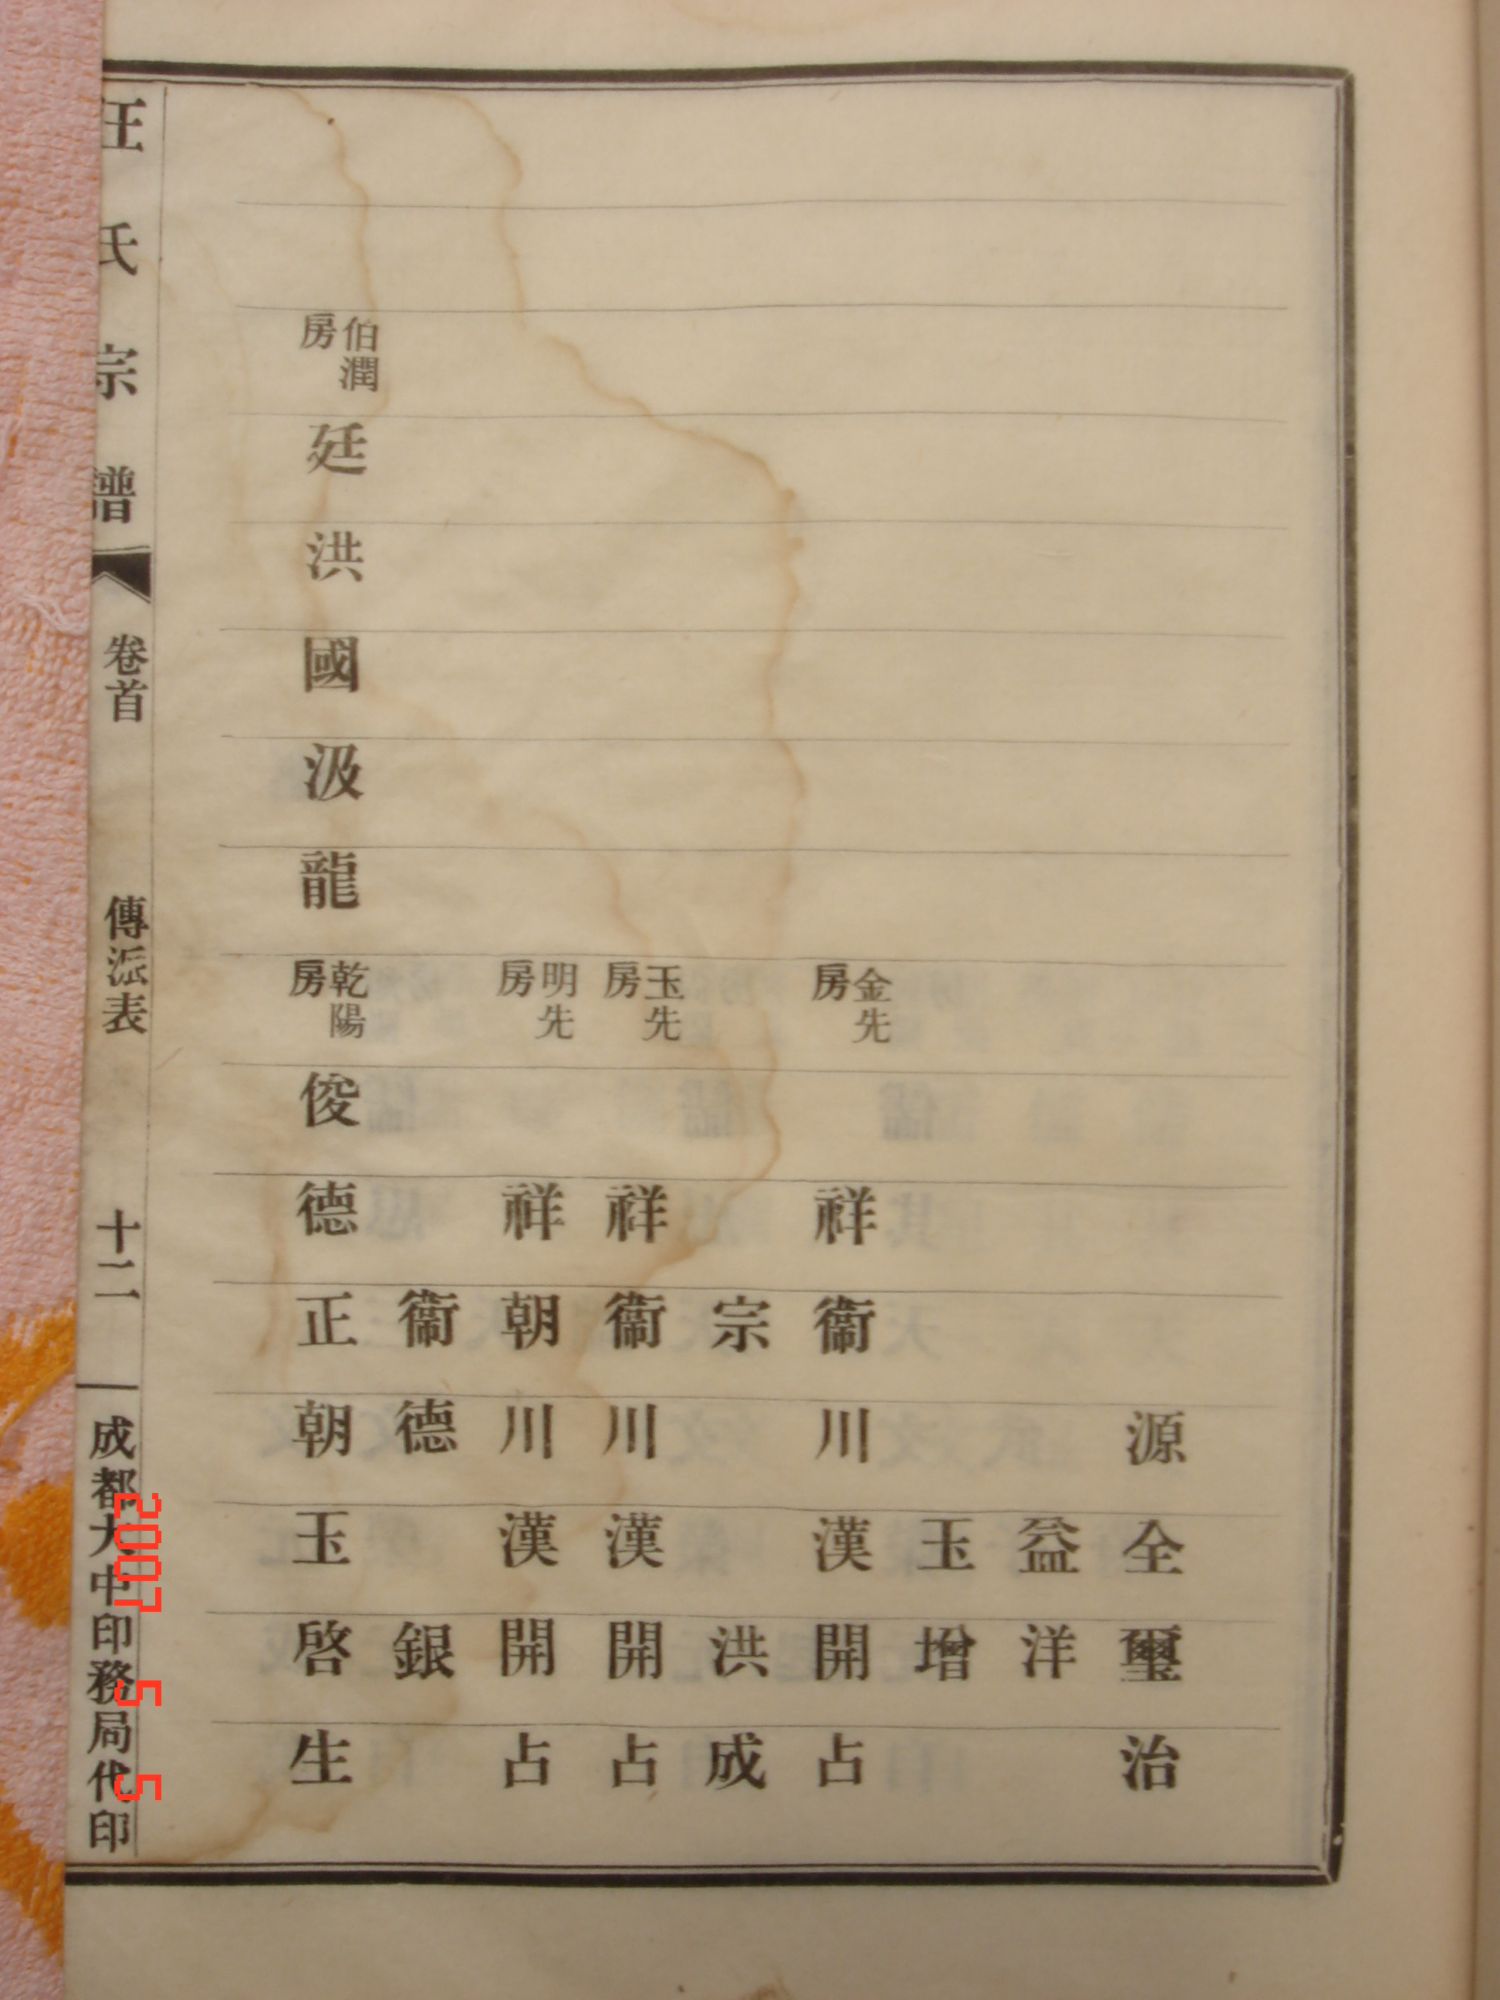 源全璽治
益洋
玉增
金先房
祥衞川漢開占
宗洪成
玉先房
祥衞川漢開占
明先房
祥朝川漢開占
衞德銀
伯潤房
廷洪國汲龍
乾陽房
俊德正朝玉啓生
汪氏宗譜
卷首
傳派表
十二
成都大中印務局代印
2007 5 5